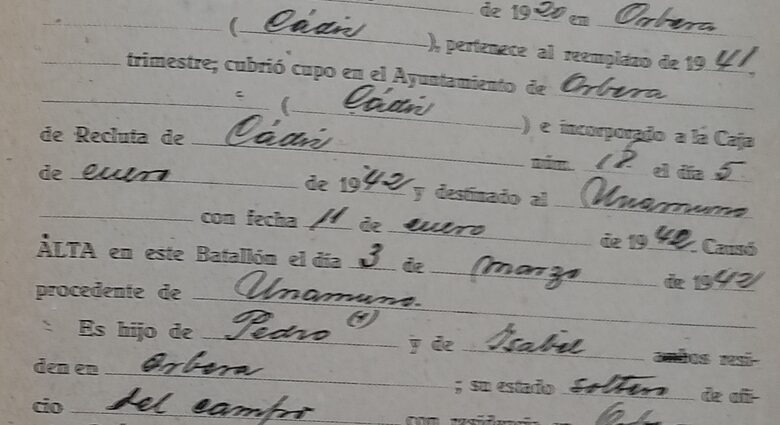 de 1920 en Orbera
( Cádiz ), pertenece al reemplazo de 1941
trimestre; cubrió cupo en el Ayuntamiento de Orbera
( Cádiz ) e incorporado a la Caja
de Recluta de Cádiz núm. 12 el día 5
de enero de 1942 y destinado al Unamuno
con fecha 11 de enero de 1942. Causó
ALTA en este Batallón el día 3 de marzo de 1942
procedente de Unamuno.
Es hijo de Pedro (+) y de Isabel resi-
den en Orbera ; su estado de ofi-
cio del campo con residencia en